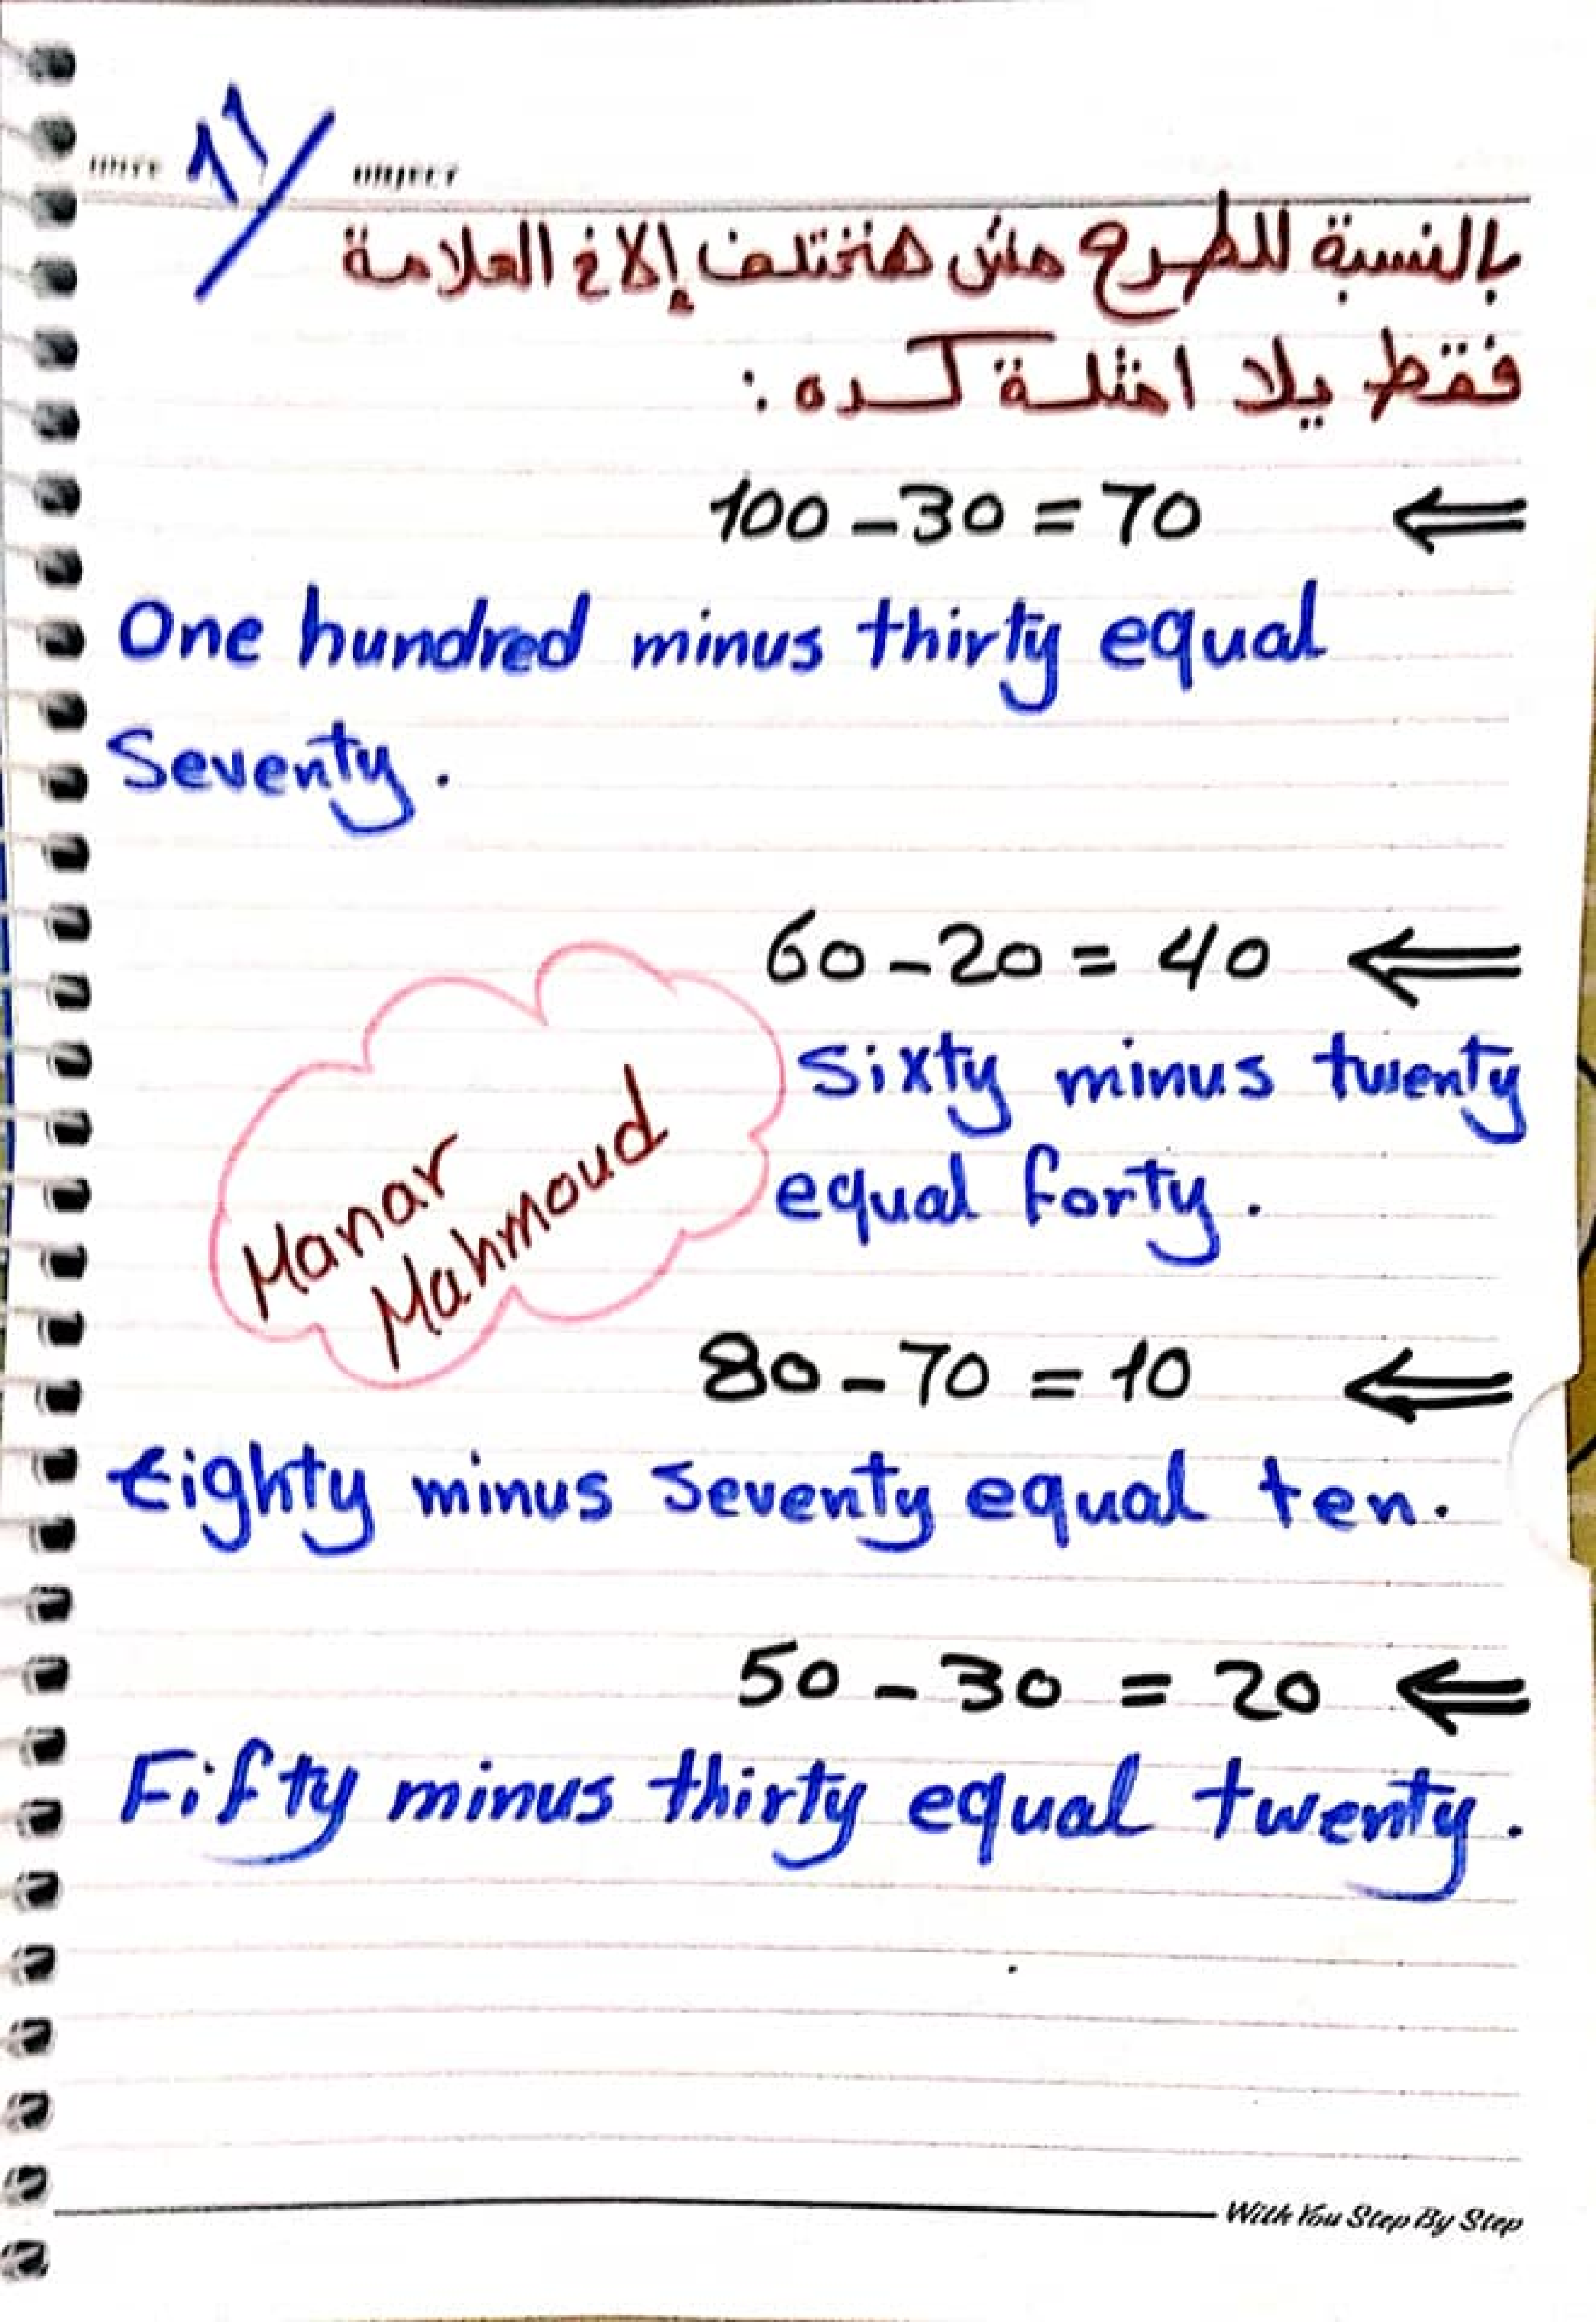 بالنسبة للطرح مش هتختلف إلا في العلامة
فقط يلا امثلة كده :
100 - 30 = 70 ⇐
One hundred minus thirty equal
Seventy.
60 - 20 = 40 ⇐
Sixty minus twenty
equal forty.
Manar
Mahmoud
80 - 70 = 10 ⇐
Eighty minus seventy equal ten.
50 - 30 = 20 ⇐
Fifty minus thirty equal twenty.
With You Step By Step